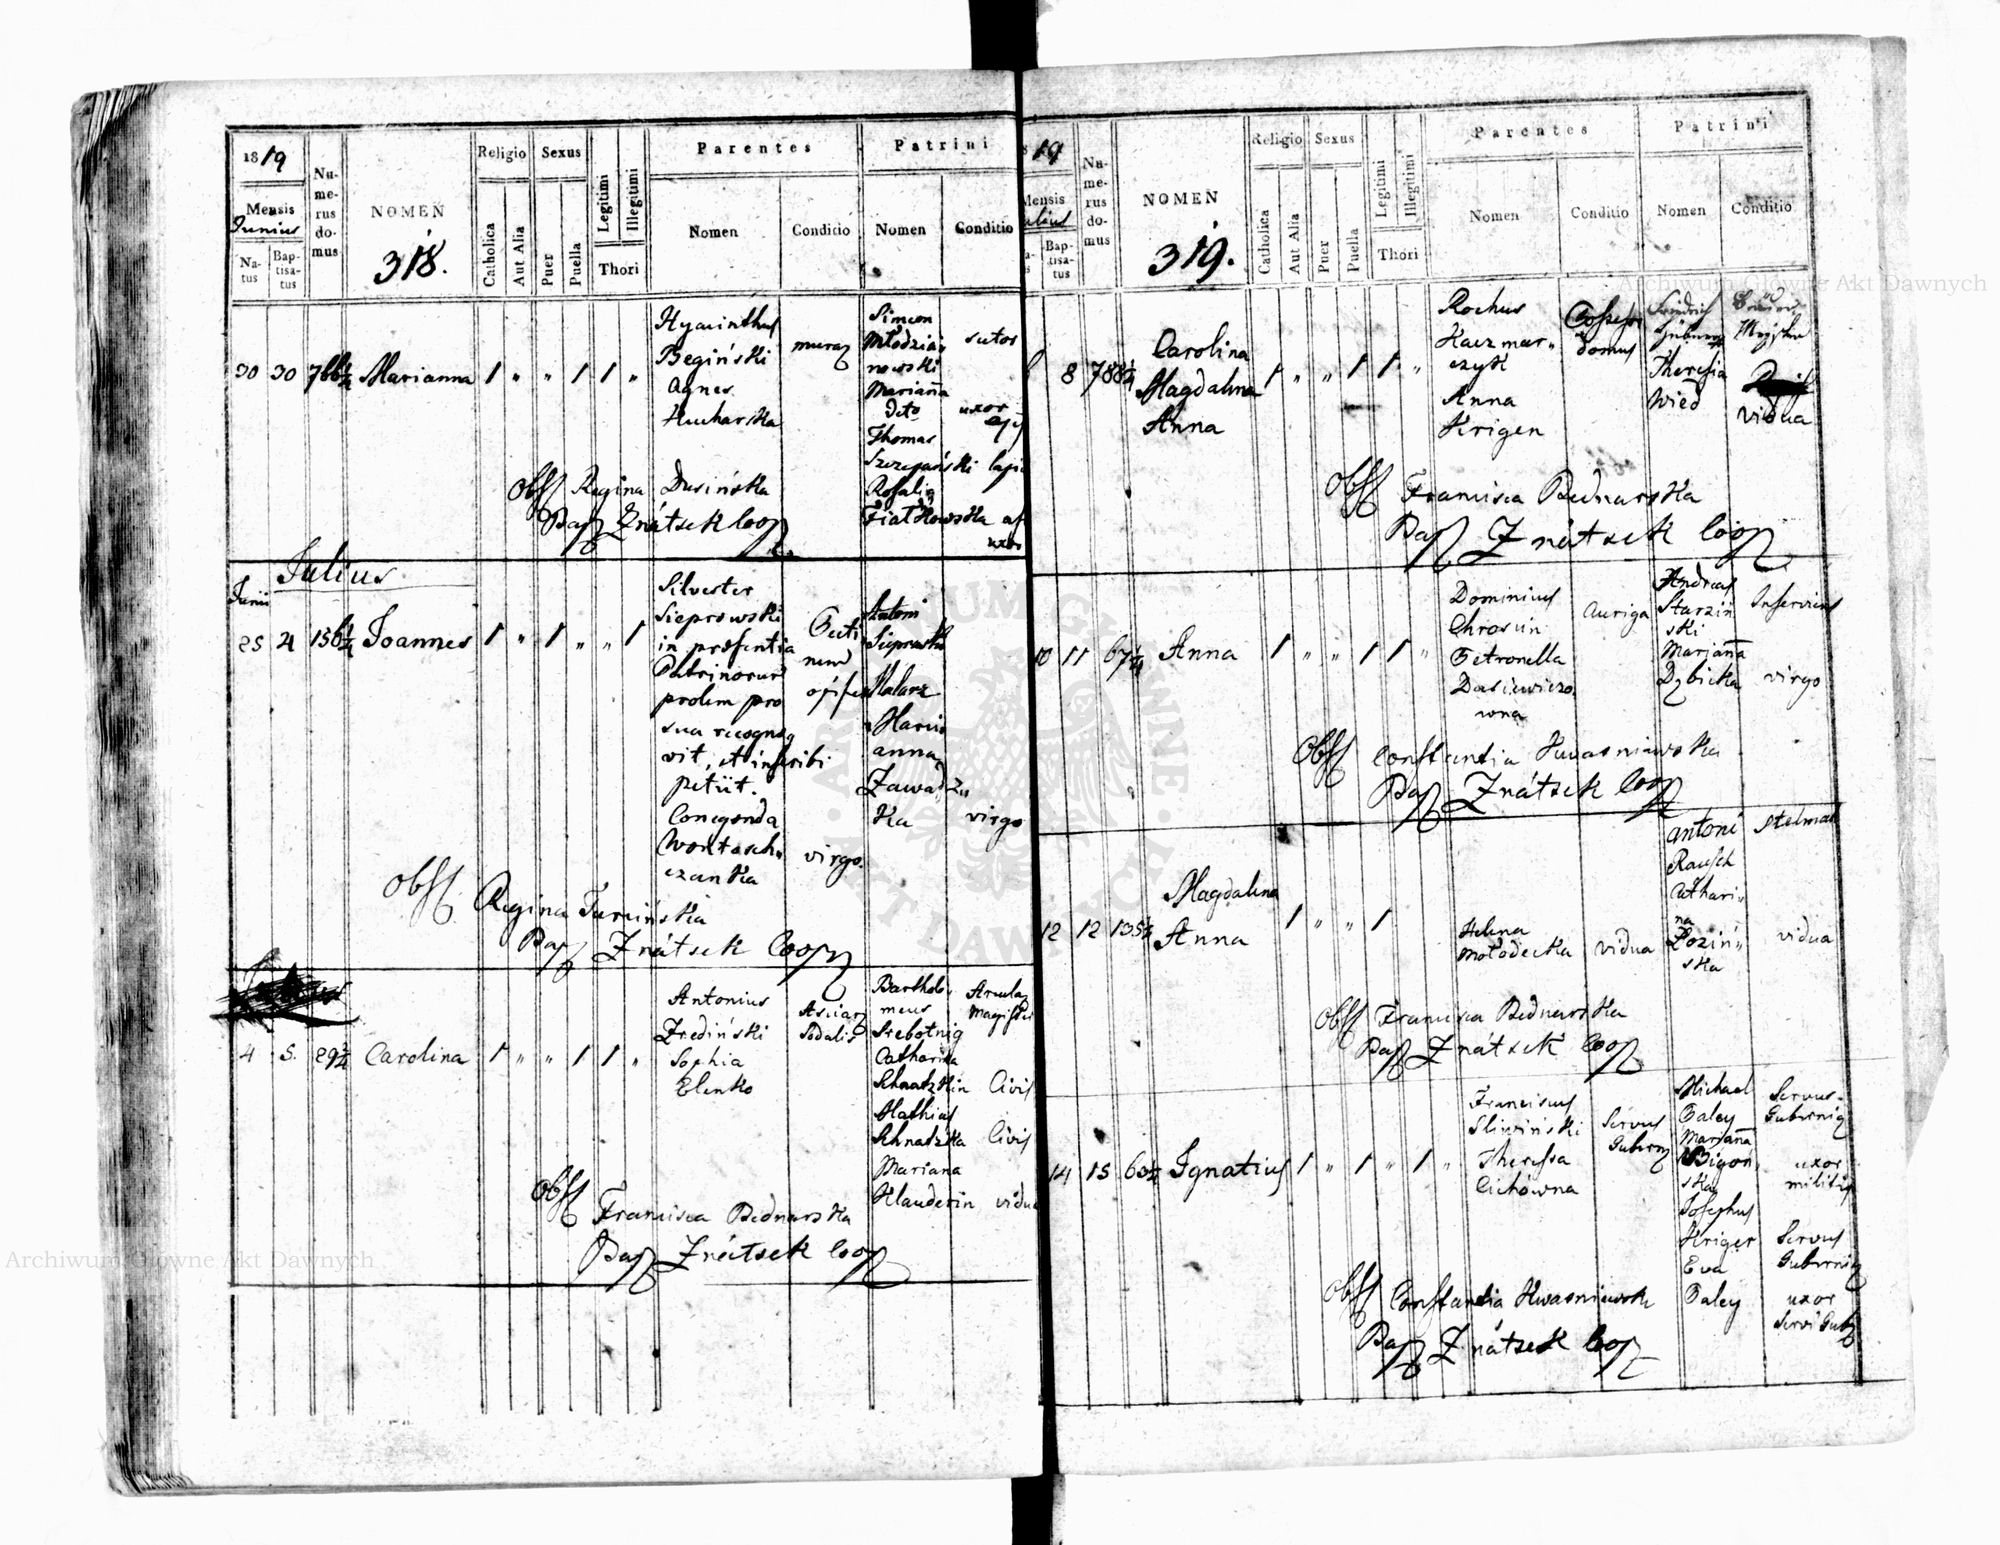 1819
Mensis
Junius
Na-
tus
Bap-
tisa-
tus
Nu-
me-
rus
do-
mus
NOMEN
318.
Religio
Catholica
Aut Alia
Sexus
Puer
Puella
Legitimi
Illegitimi
Thori
Parentes
Nomen
Conditio
Patrini
Nomen
Conditio
30 30 Marianna 1 " " 1 1 "
Hyacinthus
Begiński
Agnes
Kucharska
Simeon
Młodzia-
nowski
Marianna
deto
Thomas
Szczepański
Rosalia
Fiałkowska
sutor
uxor
Obst Regina Dusińska
Bap Znátsek Coop
Julius
Junii
25 4 Joannes 1 " 1 " " 1
Silvester
Sieprowski
in præsentia
Patrinorum
prolem pro
sua recogno
vit, et inscribi
petiit.
virgo.
Antoni
Malarz
Mari-
anna
Zawadz
ka
virgo
Obst Regina
Bap Znátsek Coop
4 5. Carolina 1 " " 1 1 "
Antonius
Sophia
Elenko
Sodalis
Bartholo-
meus
Srebotnig
Catharina
Mathias
Mariana
Klauderin
Civis
Civis
vidua
Obst Francisca Bednarska
Bap Znátsek Coop
1819
Mensis
Julius
Bap-
tisa-
tus
Nu-
me-
rus
do-
mus
NOMEN
319.
Religio
Catholica
Aut Alia
Sexus
Puer
Puella
Legitimi
Illegitimi
Thori
Parentes
Nomen
Conditio
Patrini
Nomen
Conditio
8 788¼ Carolina
Magdalena
Anna
1 " " 1 1 "
Rochus
Kaczmar-
czyk
Anna
Krigen
domus
Theresia
Wied
vidua
Obst Francisca Bednarska
Bap Znátsek Coop
10 11 67¼ Anna 1 " " 1 1 "
Dominicus
Petronella
Dasiewiczo
wna
Auriga
Andreas
Starziń
ski
Marjanna
Dybicka
Inserviens
virgo
Obst Constantia Kwasniewska
Bap Znátsek Coop
12 12 Magdalena
Anna
1 " " 1
Helena
Mołodecka
vidua
Antoni
Rausch
Cathari-
na
Łoziń-
ska
Stelmach
vidua
Obst Francisca Bednarska
Bap Znátsek Coop
14 15 Ignatius 1 " 1 " 1 "
Franciscus
Sliwiński
Theressa
Cichówna
Servus
Michael
Paley
Marjanna
Bigoń-
ska
Josephus
Kriger
Eva
Paley
Servus
Gubernii
uxor
militis
Servus
Gubernii
uxor
Servi Gub
Obst Constantia Kwasniewsk
Bap Znátsek Coop
Archiwum Główne Akt Dawnych
Archiwum Główne Akt Dawnych
ARCHIWUM GŁÓWNE AKT DAWNYCH